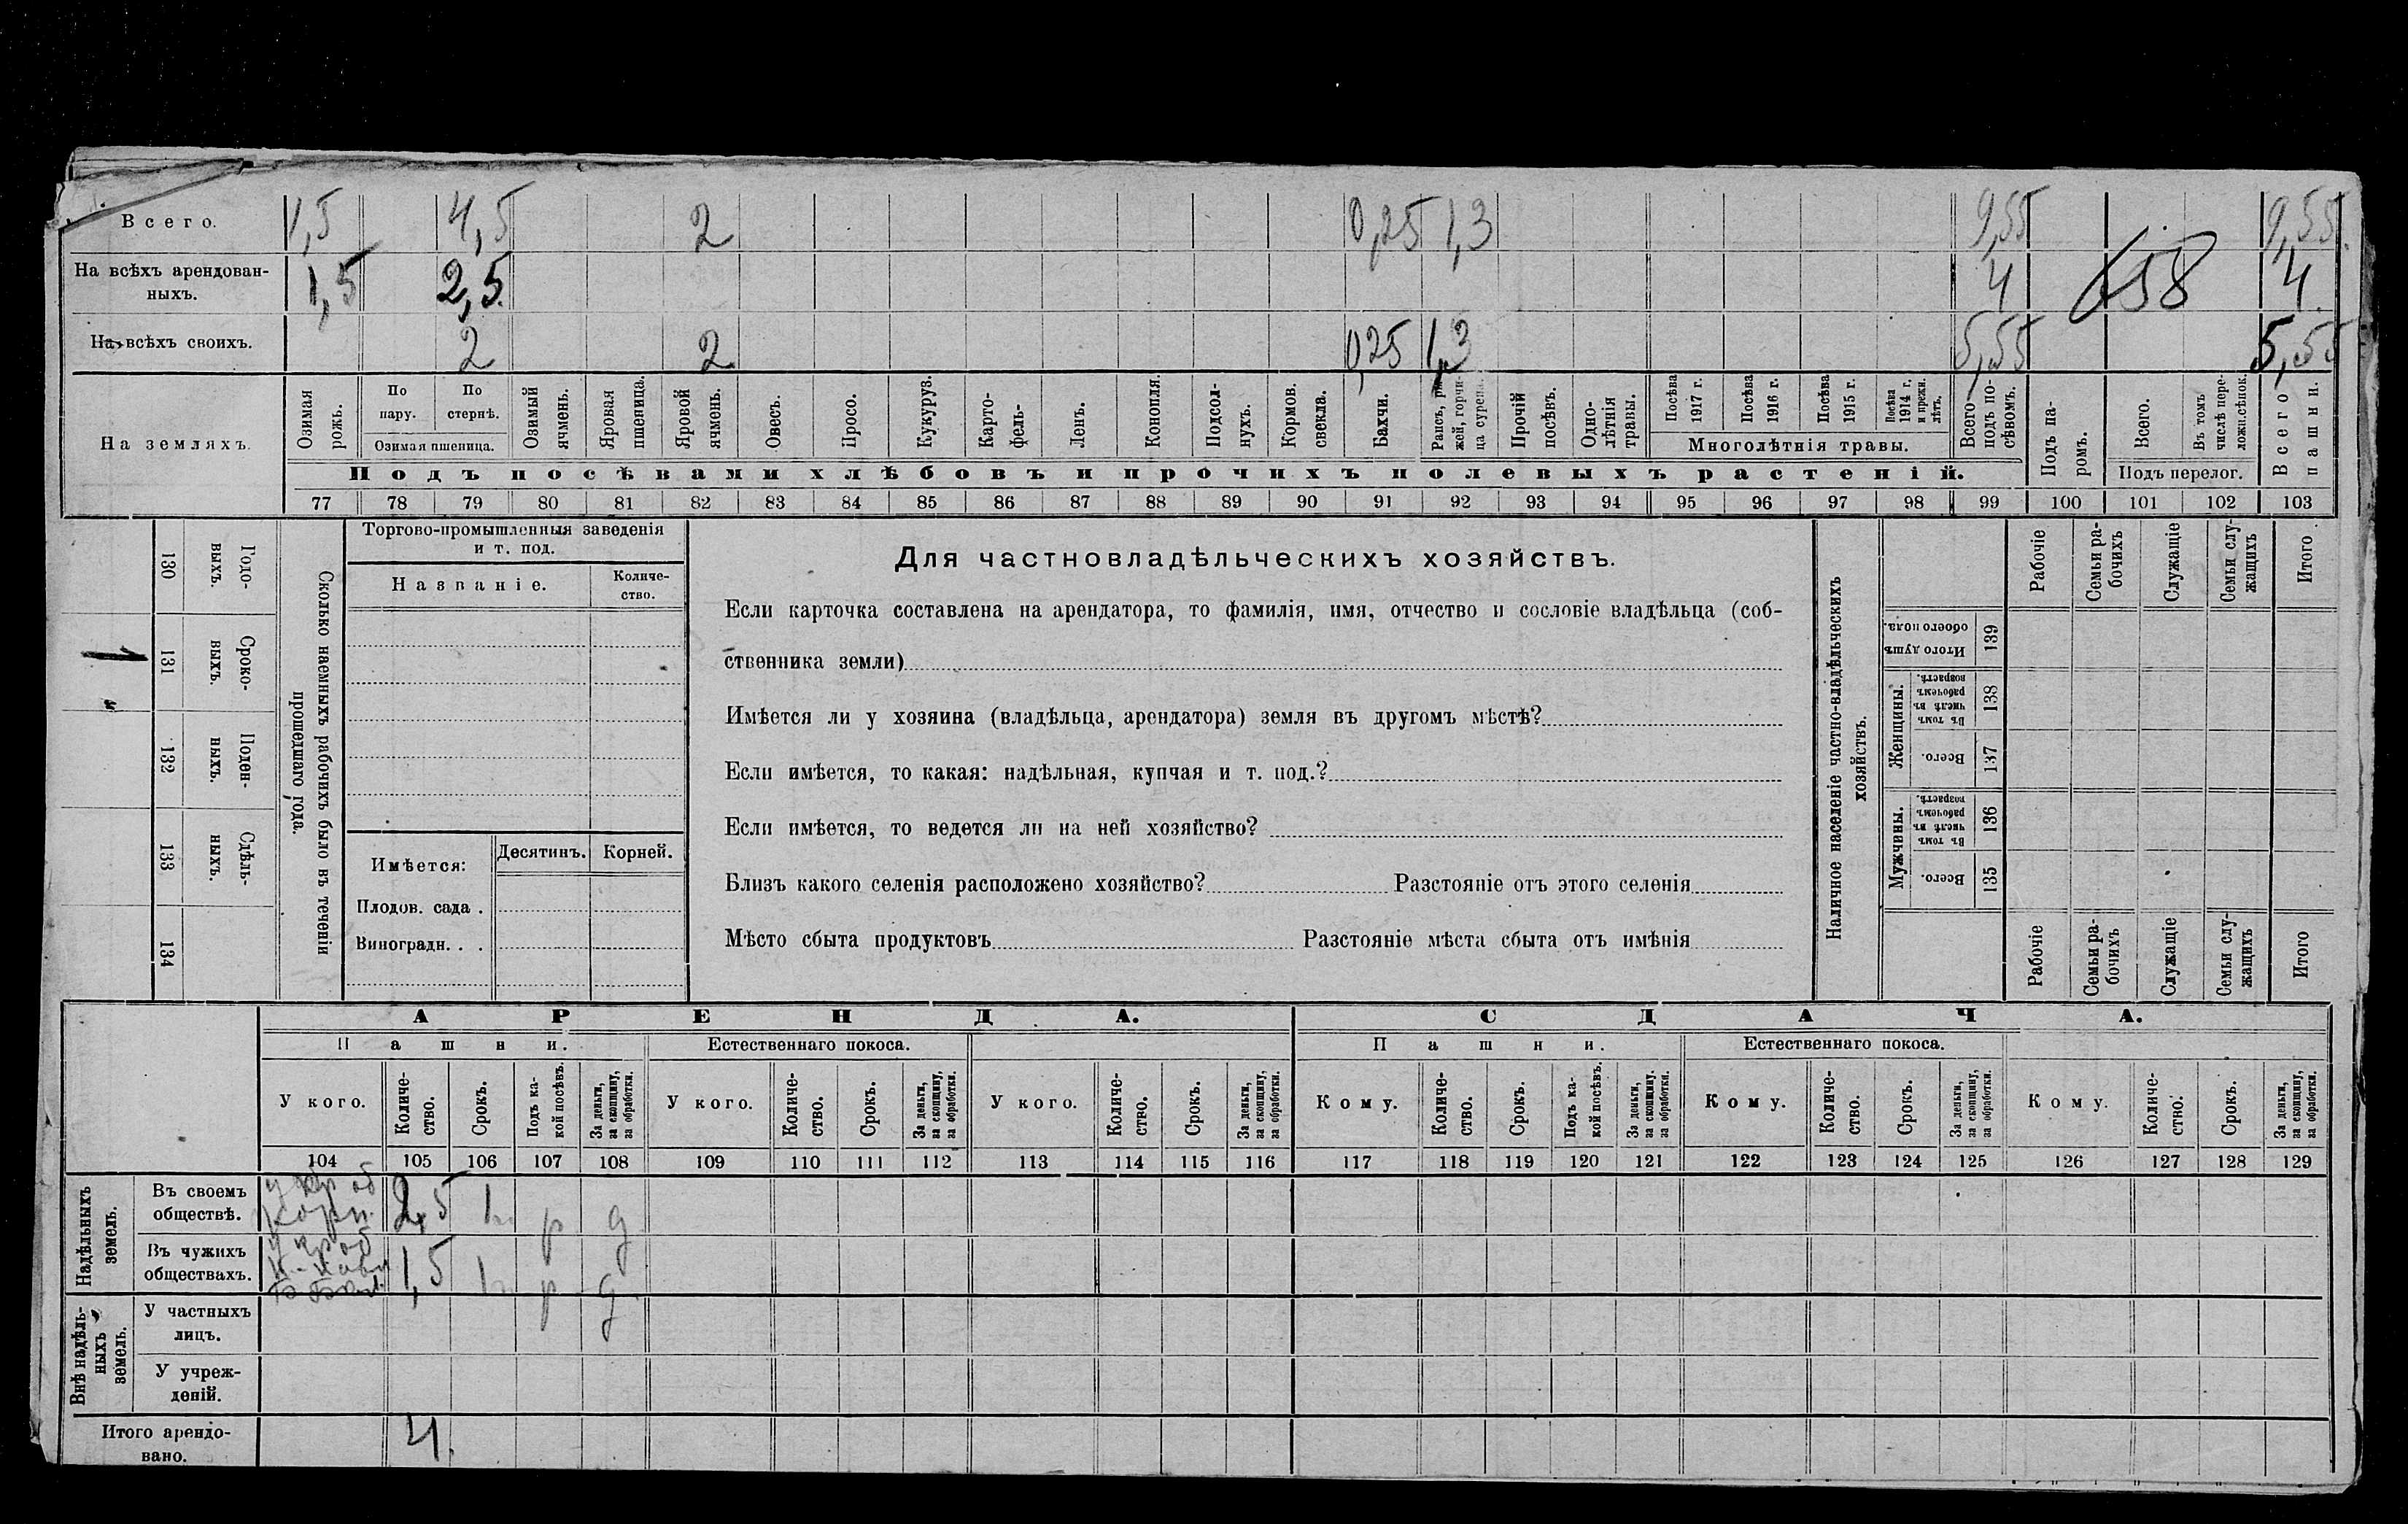 Всего. 1,5 4,5 2 0,25 1,3 9,55 9,55
На всѣхъ арендован-
ныхъ. 1,5 2,5 4 658 4
На всѣхъ своихъ. 2 2 0,25 1,3 5,55 5,55
На земляхъ.
Озимая рожь.
По пару.
По стернѣ.
Озимая пшеница.
Озимый ячмень.
Яровая пшеница.
Яровой ячмень.
Овесъ.
Просо.
Кукуруз.
Карто-
фель-
Ленъ.
Конопля.
Подсол-
нухъ.
Кормов.
свекла.
Бахчи.
Рапсъ, ры-
жей, горчи-
ца сурепа.
Прочій
посѣвъ.
Одно-
лѣтнія
травы.
Посѣва
1917 г.
Посѣва
1916 г.
Посѣва
1915 г.
Посѣва
1914 г.
и прежн.
лѣтъ.
Многолѣтнія травы.
Всего
подъ по-
сѣвомъ.
Подъ па-
ромъ.
Всего.
Въ томъ
числѣ пере-
ложн.сѣнок.
Подъ перелог.
Всего
пашни.
Подъ посѣвами хлѣбовъ и прочихъ полевыхъ растеній.
77 78 79 80 81 82 83 84 85 86 87 88 89 90 91 92 93 94 95 96 97 98 99 100 101 102 103
130 Годо-
выхъ.
1 131 Сроко-
выхъ.
132 Поден-
ныхъ.
133 Сдѣль-
ныхъ.
134
Сколько наемныхъ рабочихъ было въ теченіи
прошедшаго года.
Торгово-промышленныя заведенія
и т. под.
Названіе.
Количе-
ство.
Имѣется: Десятинъ. Корней.
Плодов. сада .
Виноградн. . .
Для частновладѣльческихъ хозяйствъ.
Если карточка составлена на арендатора, то фамилія, имя, отчество и сословіе владѣльца (соб-
ственника земли)
Имѣется ли у хозяина (владѣльца, арендатора) земля въ другомъ мѣстѣ?
Если имѣется, то какая: надѣльная, купчая и т. под.?
Если имѣется, то ведется ли на ней хозяйство?
Близъ какого селенія расположено хозяйство? Разстояніе отъ этого селенія
Мѣсто сбыта продуктовъ Разстояніе мѣста сбыта отъ имѣнія
Наличное населеніе частно-владѣльческихъ
хозяйствъ.
Рабочіе
Семьи ра-
бочихъ
Служащіе
Семьи слу-
жащихъ
Итого
Итого душъ
обоего пола. 139
Женщины.
Въ томъ
числѣ въ
рабочемъ
возрастѣ. 138
Всего. 137
Мужчины.
Въ томъ
числѣ въ
рабочемъ
возрастѣ. 136
Всего. 135
Рабочіе
Семьи ра-
бочихъ
Служащіе
Семьи слу-
жащихъ
Итого
АРЕНДА. СДАЧА.
Пашни. Естественнаго покоса. Пашни. Естественнаго покоса.
У кого.
Количе-
ство.
Срокъ.
Подъ ка-
кой посѣвъ.
За деньги,
за скопщину,
за обработки.
У кого.
Количе-
ство.
Срокъ.
За деньги,
за скопщину,
за обработки.
У кого.
Количе-
ство.
Срокъ.
За деньги,
за скопщину,
за обработки.
Кому.
Количе-
ство.
Срокъ.
Подъ ка-
кой посѣвъ.
За деньги,
за скопщину,
за обработки.
Кому.
Количе-
ство.
Срокъ.
За деньги,
за скопщину,
за обработки.
Кому.
Количе-
ство.
Срокъ.
За деньги,
за скопщину,
за обработки.
104 105 106 107 108 109 110 111 112 113 114 115 116 117 118 119 120 121 122 123 124 125 126 127 128 129
Надѣльныхъ
земель.
Въ своемъ
обществѣ. 2,5 1 р д
Въ чужихъ
обществахъ. 1,5 1 р д
Внѣ надѣль-
ныхъ
земель.
У частныхъ
лицъ.
У учреж-
деній.
Итого арендо-
вано. 4.